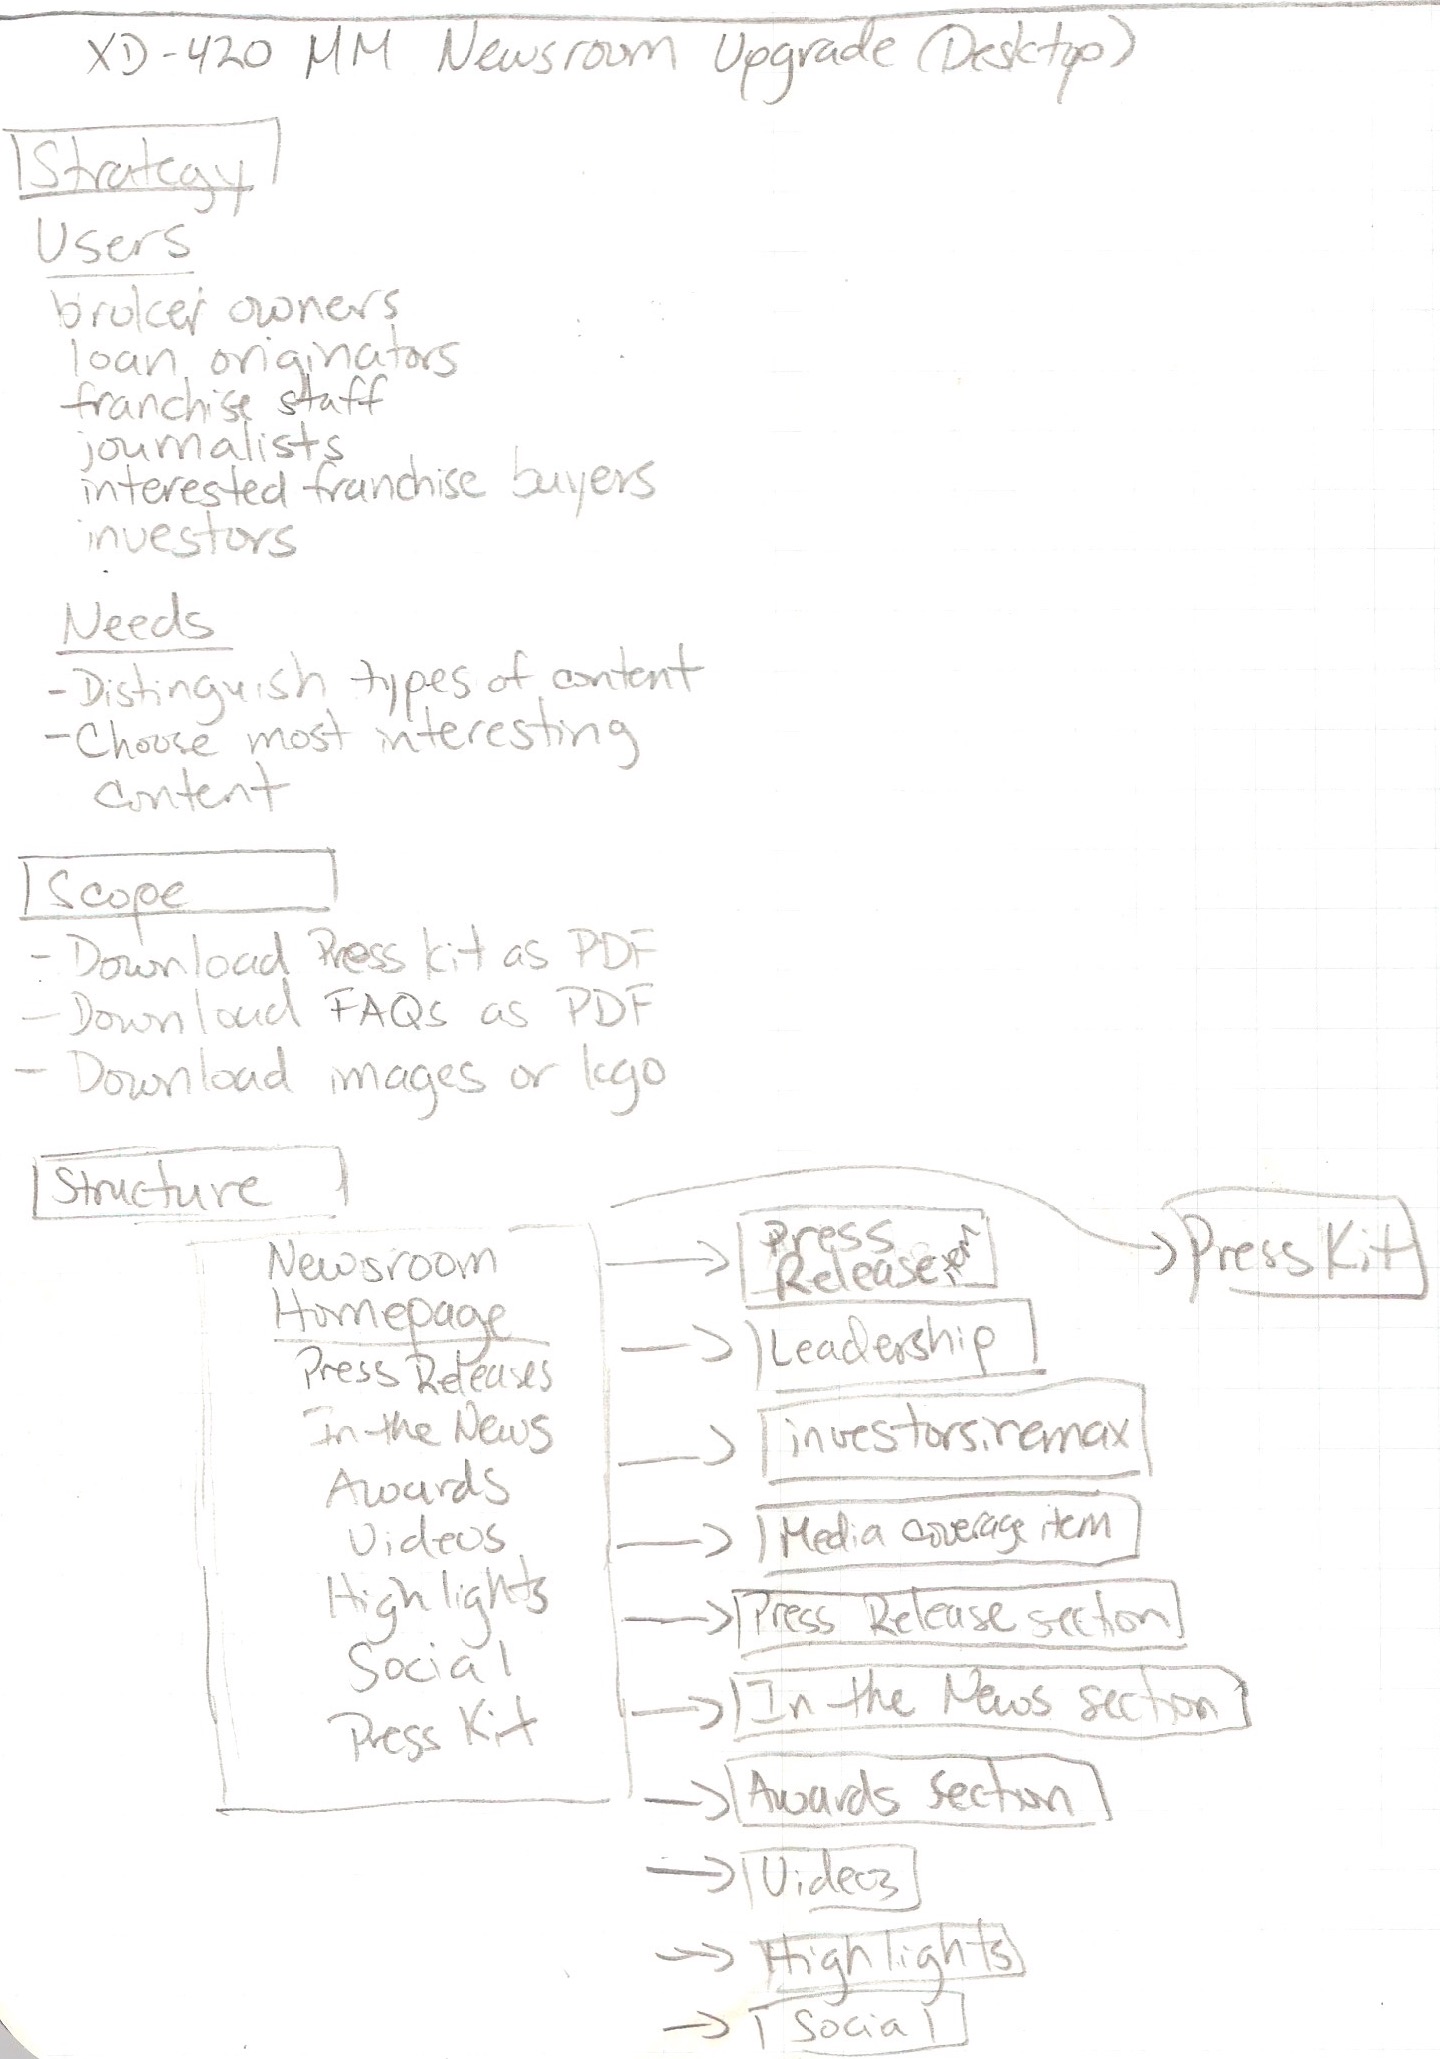 XD-420 MM Newsroom Upgrade (Desktop)
Strategy
Users
broker owners
loan originators
franchise staff
journalists
interested franchise buyers
investors
Needs
- Distinguish types of content
- Choose most interesting
content
Scope
- Download Press Kit as PDF
- Download FAQs as PDF
- Download images or logo
Structure
Newsroom
Homepage
Press Releases
In the News
Awards
Videos
Highlights
Social
Press Kit
Press
Release item
Press Kit
Leadership
investors.remax
Media coverage item
Press Release section
In the News section
Awards section
Videos
Highlights
Social